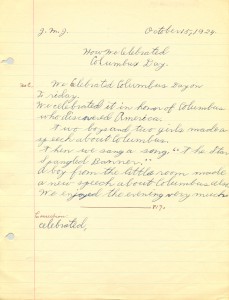 J.M.J. October 15, 1924
How We Celebrated
Columbus Day.
We Celebrated Columbus Day on
Friday.
We celebrated it in honor of Columbus
who discovered America.
Two boys and two girls made a
speech about Columbus.
Then we sang a song "The Star
Spangled Banner."
A boy from the little room made
a new speech about Columbus also
We enjoyed the evening very much
celebrated,